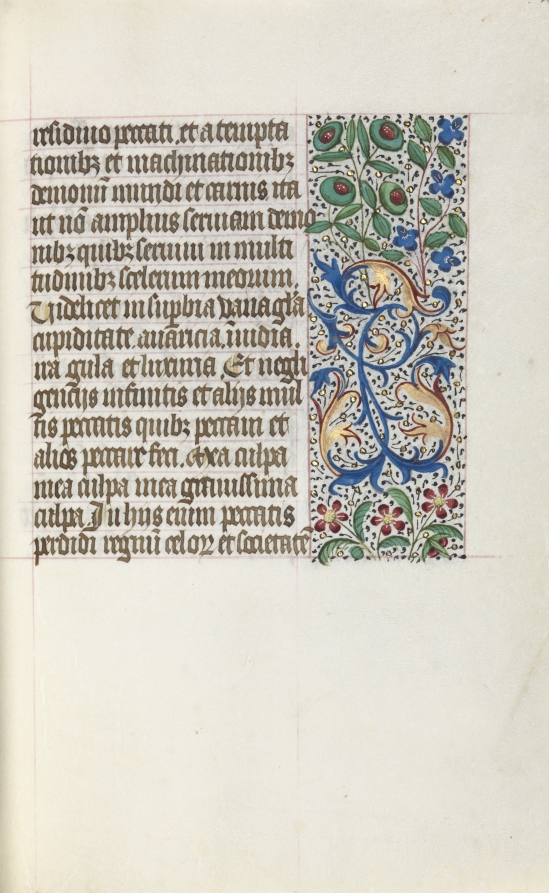 residiuo peccati. et a tempta
tionibꝫ et machinationibꝫ
demonũ mundi et carnis ita
ut nõ amplius seruiam demo
nibꝫ quibꝫ seruiui in multi
tudinibꝫ scelerum meorum
Videlicet in supbia vana gła
cupiditate. auaricia. inuidia.
ira gula et luxuria. Et negli
gencijs infinitis et alijs mul
tis peccatis quibꝫ peccaui et
alios peccare feci. Mea culpa
mea culpa mea grauissima
culpa In hijs enim peccatis
perdidi regnũ celoꝝ et societatẽ